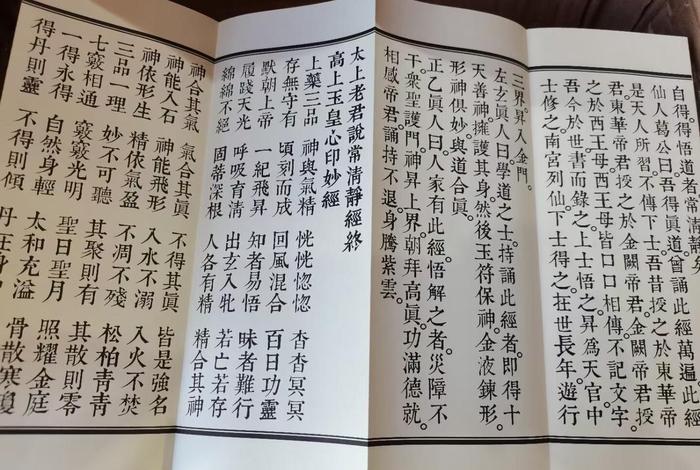 自得。得悟道者常清靜矣
仙人葛公曰。吾得眞道曾誦此經萬遍。此經
是天人所習不傳下士。吾昔授之於東華帝
君。東華帝君授之於金闕帝君。金闕帝君授
之於西王母。西王母皆口口相傳不記文字。
吾今於世書而錄之。上士悟之昇爲天官。中
士修之南宮列仙。下士得之在世長年。遊行
三界昇入金門。
左玄眞人曰學道之士持誦此經者。即得十
天善神擁護其身。然後玉符保神。金液鍊形。
形神俱妙與道合眞。
正乙眞人曰人家有此經悟解之者。災障不
干。衆聖護門。神昇上界。朝拜高眞。功滿德就。
相感帝君。誦持不退身騰紫雲。
太上老君說常清靜經終
高上玉皇心印妙經
上藥三品 神與氣精 恍恍惚惚 杳杳冥冥
存無守有 頃刻而成 回風混合 百日功靈
默朝上帝 一紀飛昇 知者易悟 昧者難行
履踐天光 呼吸育清 出玄入牝 若亡若存
綿綿不絕 固蒂深根 人各有精 精合其神
神合其氣 氣合其眞 不得其眞 皆是強名
神能入石 神能飛形 入水不溺 入火不焚
神依形生 精依氣盈 不凋不殘 松柏青青
三品一理 妙不可聽 其聚則有 其散則零
七竅相通 竅竅光明 聖日聖月 照耀金庭
一得永得 自然身輕 太和充溢 骨散寒瓊
得丹則靈 不得則傾 丹在身